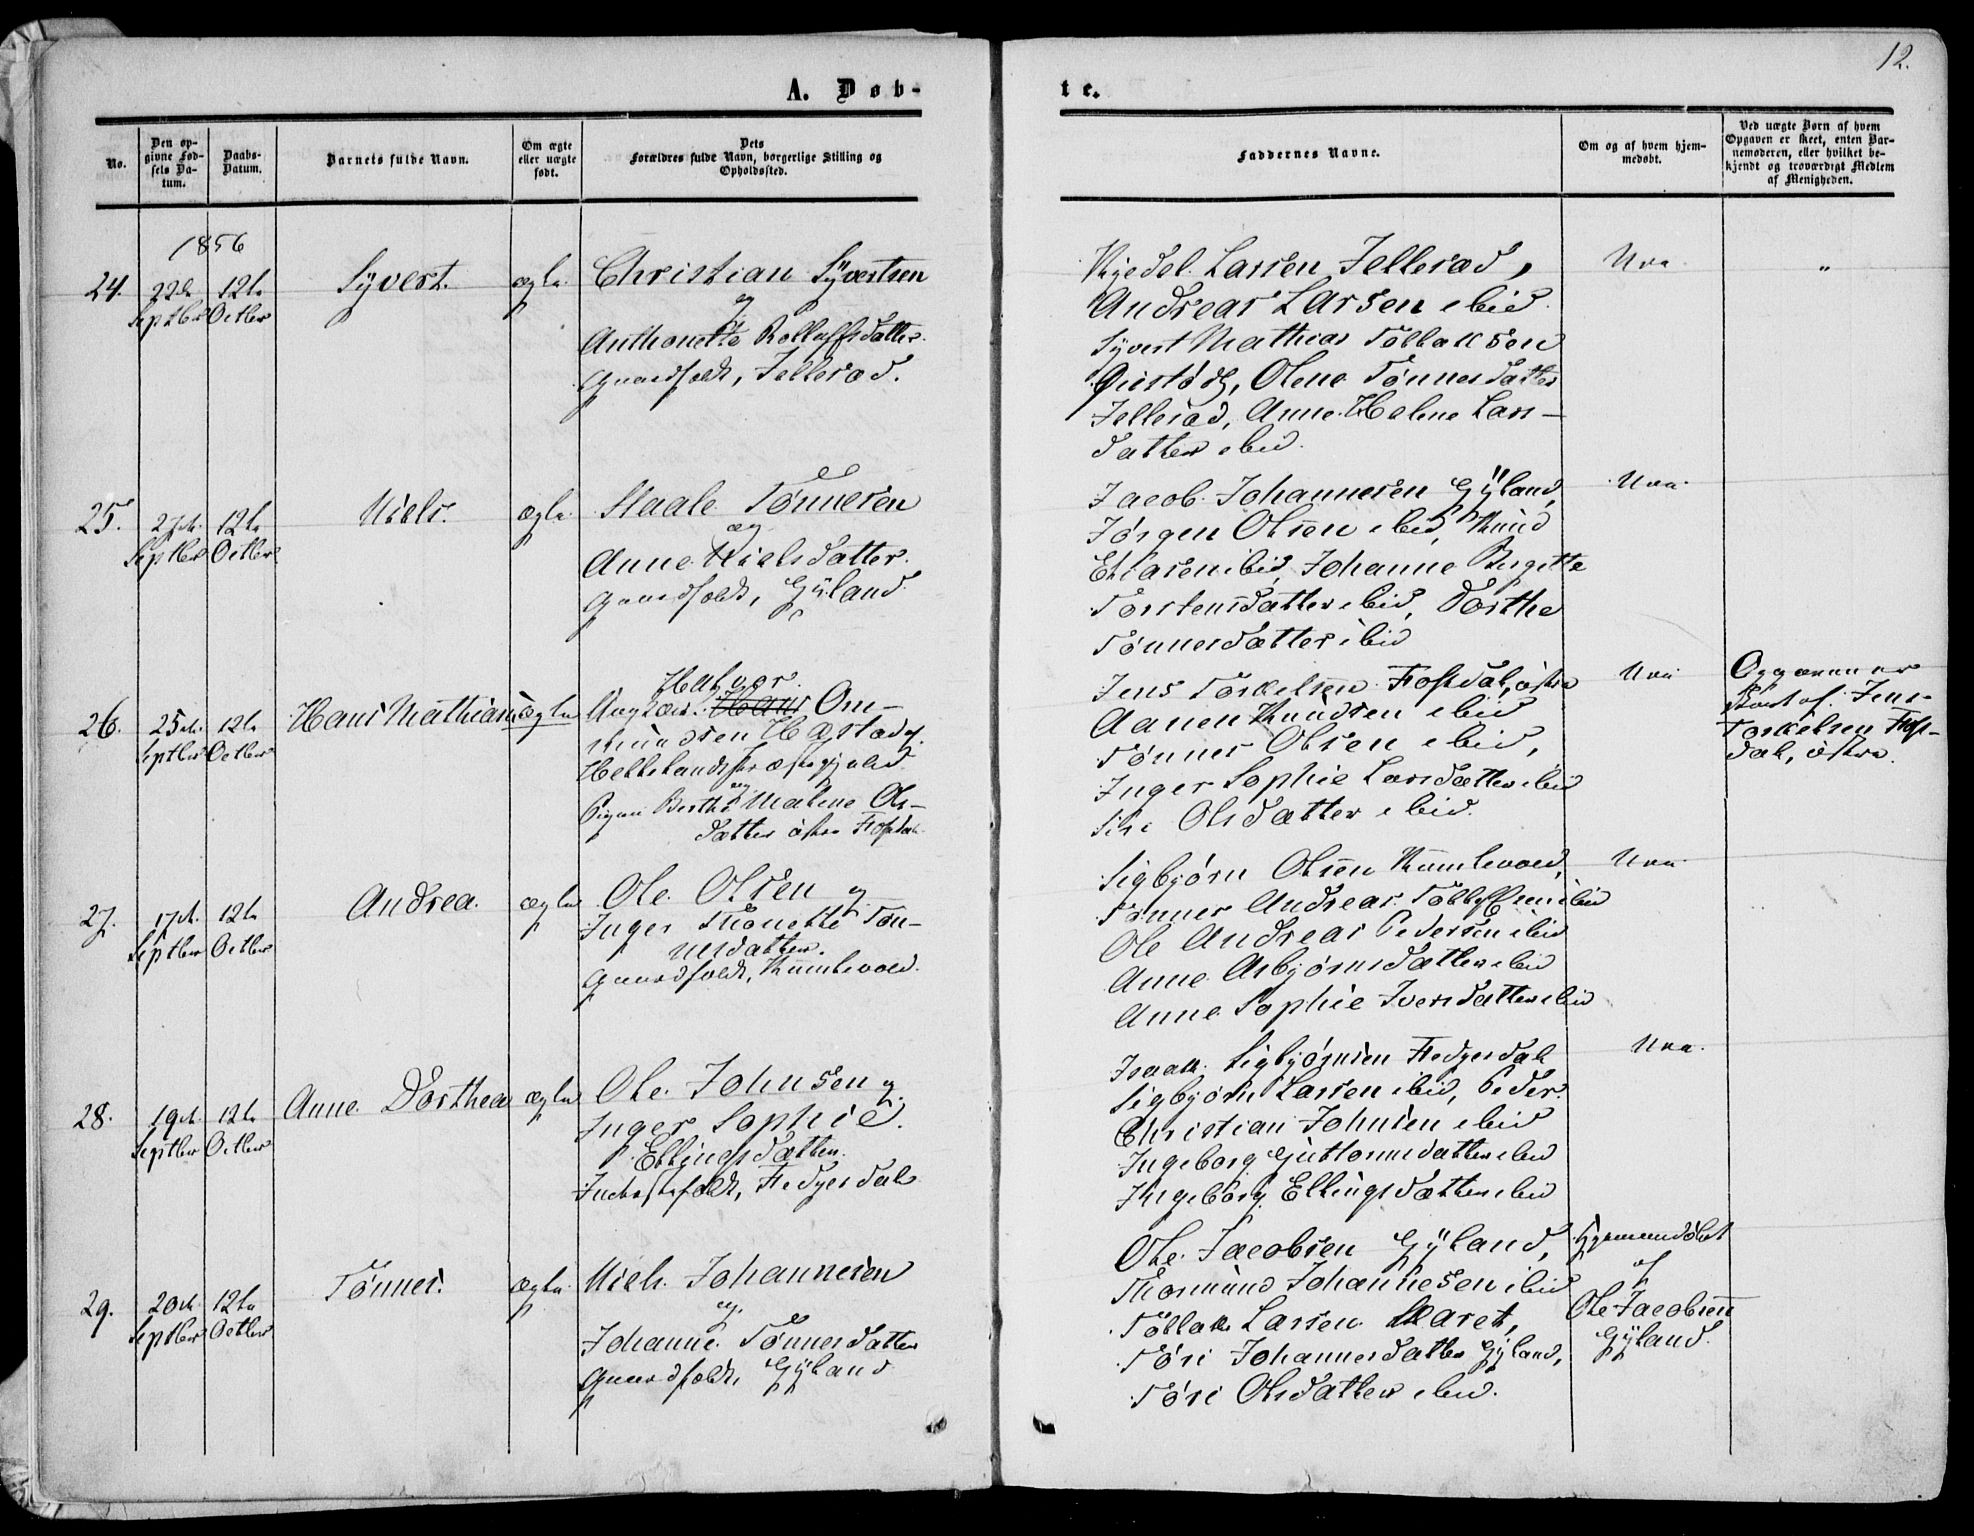 12.
A. Døb-
te.
No.
Den op-
givne Fød-
sels Da-
tum.
Daabs-
Datum.
Barnets fulde Navn.
Om ægte
eller uægte
født.
Dets
Forældres fulde Navn, borgerlige Stilling og
Opholdssted.
Faddernes Navne.
Om og af hvem hjem-
medøbt.
Ved uægte Børn af hvem
Opgaven er skeet, enten Bar-
nemoderen, eller hvilket be-
kjendt og troværdigt Medlem
af Menigheden.
1856
24.
22de
Septbr
12te
Octbr
Syvert.
ægte
Christian Syvertsen
og
Anthonette Rolluffsdatter
Gaardfolk, Jellesad.
Kjedel Larsen Jellesad,
Andreas Larsen ibid.
Syvert Mathias Tollaksen
Olene Tønnesdatter
Jellesad, Anne Helene Lars-
datter ibid.
"
25.
27de
Septbr
12te
Octbr
Niels.
ægte
Staale Tønnesen
og
Anne Nielsdatter.
Gaardfolk, Gÿland.
Jacob Johannesen Gÿland,
Jørgen Olsen ibid, Knud
Eliasen ibid, Johanne Birgitte
Torstensdatter ibid, Dorthe
Tønnesdatter ibid
26.
25de
Septbr
12te
Octbr
Hans Mathias
uægte
Halvor
Ungkarl Hans Om-
mundsen Hæstad,
Hellelands Præstegjeld
og
Pigen Berthe Malene Ols-
datter østre Flofsdal
Jens Torkelsen Flofsdal, østre
Aanen Knudsen ibid
Tønnes Olsen ibid,
Inger Sophie Larsdatter ibid
Siri Olsdatter ibid.
Opgaven er
skeet af Jens
Torkelsen Flofs-
dal, østre.
27.
17de
Septbr
12te
Octbr
Andrea.
ægte
Ole Olsen og
Inger Thonette Tøn-
nesdatter.
Gaardfolk, Kumlevold.
Sigbjørn Olsen Kumlevold,
Tønnes Andreas ibid
Ole Andreas Pedersen ibid
Anne Asbjørnsdatter ibid
Anne Sophie Iversdatter ibid
28.
19de
Septbr
12te
Octbr
Anne Dorthea
ægte
Ole Johnsen og
Inger Sophie
Ellingsdatter.
Isaak Sigbjørnsen Fedgersdal
Sigbjørn Larsen ibid, Peder
Christian Johnsen ibid
Ingeborg Guttormsdatter ibid
Ingeborg Ellingsdatter ibid
29.
20de
Septbr
12te
Octbr
Tønnes.
ægte
Niels Johannesen
og
Johanne Tønnesdatter
Gaardfolk, Gÿland
Ole Jacobsen Gÿland,
Thormund Johannesen ibid
Tollak Larsen
Tøri Johannesdatter Gÿland,
Tøri Olsdatter ibid.
Hjemmedøbt
af
Ole Jacobsen
Gÿland.